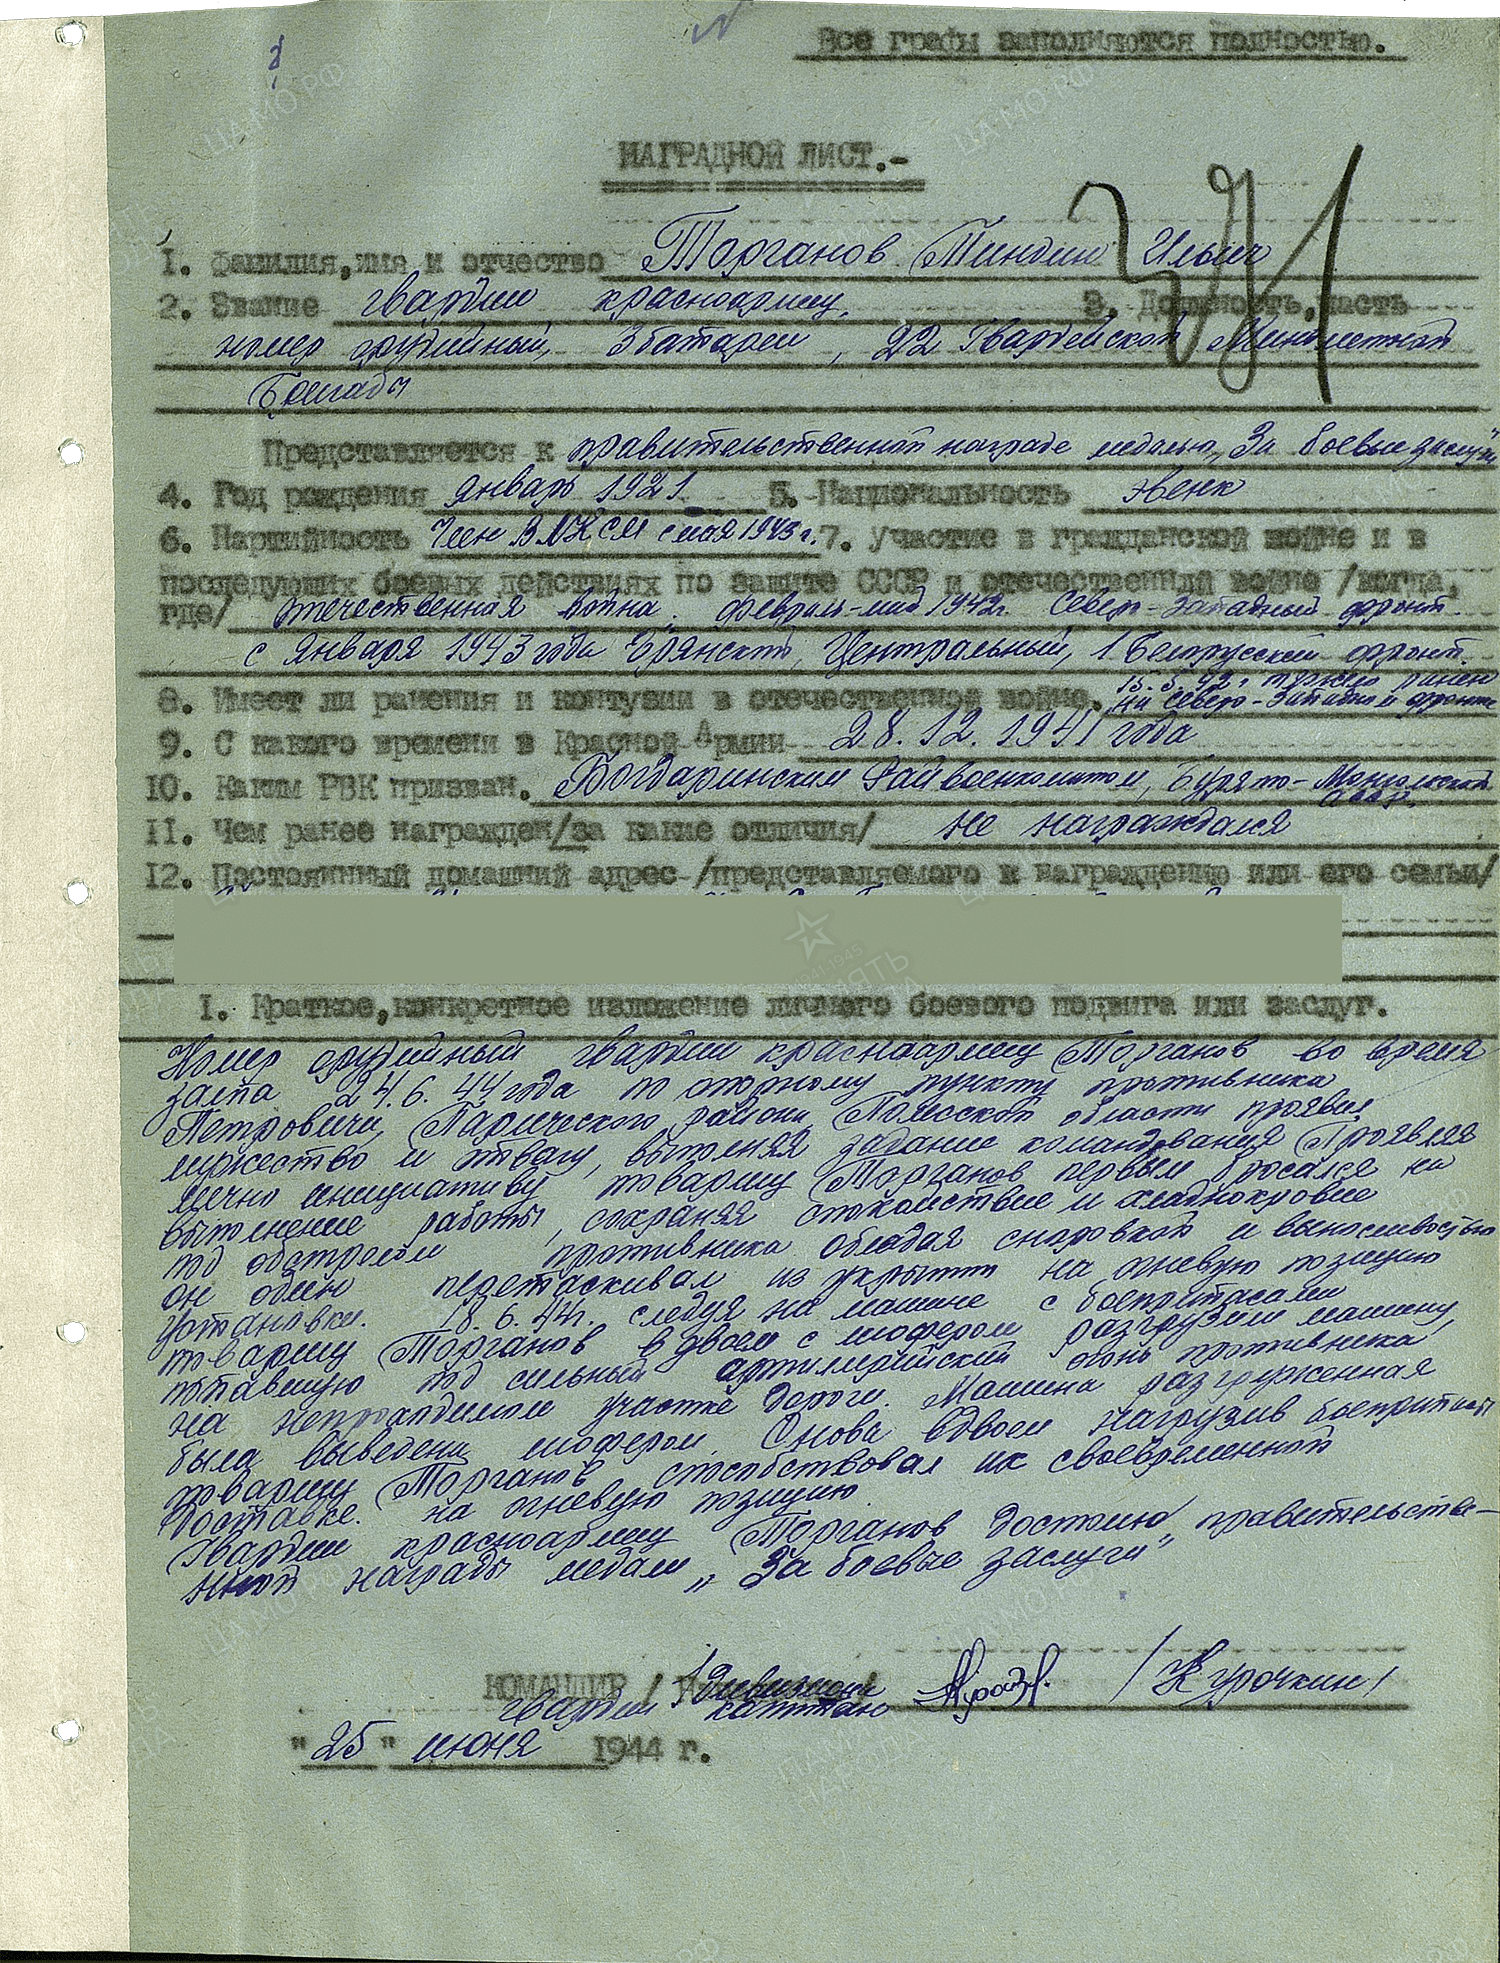 Все графы заполняются полностью.
НАГРАДНОЙ ЛИСТ.-
371
1. Фамилия, имя и отчество Торганов Миндин Ильич
2. Звание гвардии красноармеец. 3. Должность, часть
номер орудийный, 3 батареи, 22 Гвардейской Минометной
Бригады
Представляется к правительственной награде медалью „За боевые заслуги"
4. Год рождения январь 1921 5. Национальность эвенк
6. Партийность Член ВЛКСМ с мая 1943 г. 7. Участие в гражданской войне и в
последующих боевых действиях по защите СССР и отечественный войне /когда,
где/ отечественная война. февраль-май 1942г. Северо-Западный фронт
с января 1943 года Брянский, Центральный, 1 Белорусский фронт.
8. Имеет ли ранения и контузии в отечественной войне. 15.5.42г тяжело ранен
на Северо-Западном фронте
9. С какого времени в Красной Армии 28.12.1941 года
10. Каким РВК призван. Богдаринским Райвоенкоматом, Бурято-Монгольской
АССР.
11. Чем ранее награжден /за какие отличия/ не награждался
12. Постоянный домашний адрес /представляемого к награждению или его семьи/
I. Краткое, конкретное изложение личного боевого подвига или заслуг.
Номер орудийный гвардии красноармеец Торганов во время
залпа 24.6.44 года по опорному пункту противника
Петровичи, Паричского района, Полесской области проявил
мужество и отвагу, выполняя задание командования. Проявляя
личную инициативу товарищ Торганов первым бросался на
выполнение работы, сохраняя спокойствие и хладнокровие
под обстрелом противника обладая сноровкой и выносливостью
он один перетаскивал из укрытия на огневую позицию
установки. 18.6.44г. следуя на машине с боеприпасами
товарищ Торганов вдвоем с шофером разгрузили машину,
попавшую под сильный артиллерийский огонь противника
на непроходимом участке дороги. Машина разгруженная
была выведена шофером. Снова вдвоем нагрузив боеприпасы
товарищ Торганов способствовал их своевременной
доставке на огневую позицию.
Гвардии красноармеец Торганов достоин правительстве-
нной награды медали „За боевые заслуги"
КОМАНДИР / Дивизиона /
гвардии капитан /Курочкин/
"25" июня 1944 г.